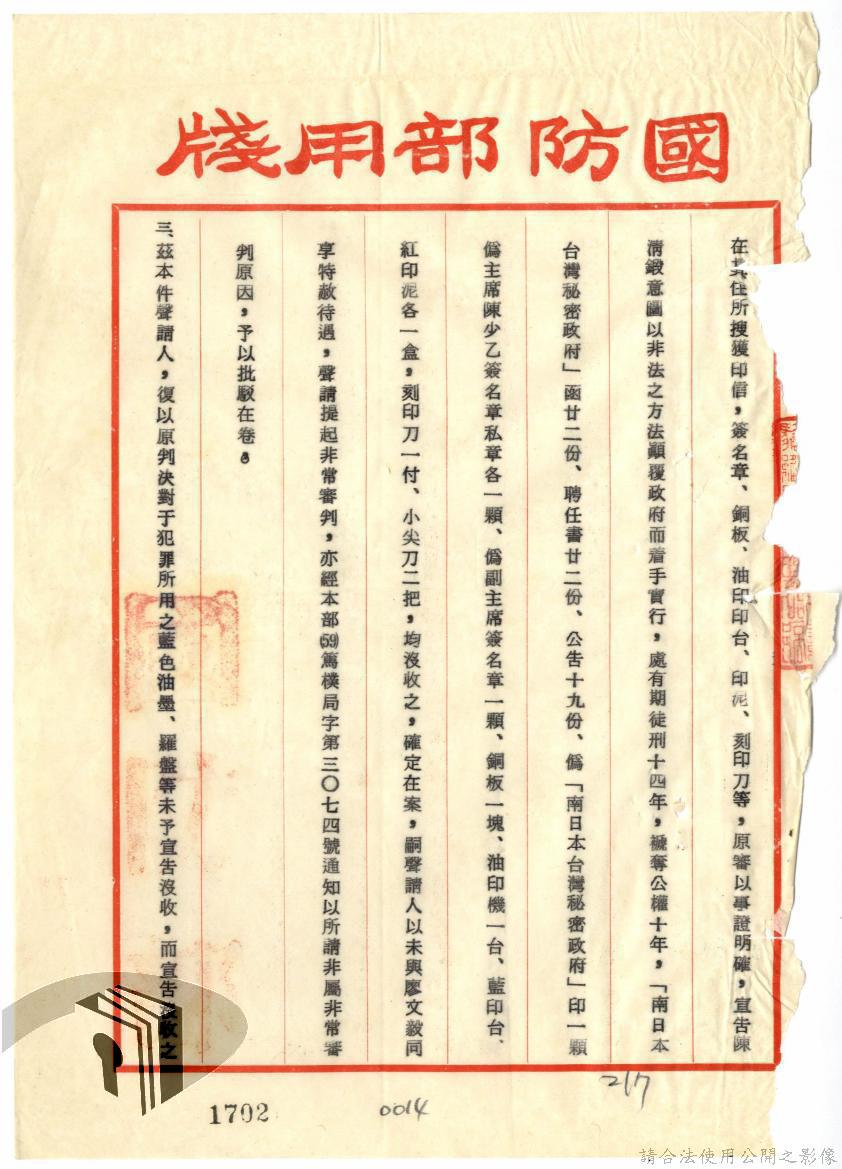 國防部用牋
在其住所搜獲印信，簽名章、銅板、油印印台、印泥、刻印刀等，原審以事證明確，宣告陳
清鍛意圖以非法之方法顛覆政府而着手實行，處有期徒刑十四年，褫奪公權十年，「南日本
台灣秘密政府」函廿二份、聘任書廿二份、公告十九份、僞「南日本台灣秘密政府」印一顆
僞主席陳少乙簽名章私章各一顆、僞副主席簽名章一顆、銅板一塊、油印機一台、藍印台、
紅印泥各一盒，刻印刀一付、小尖刀二把，均沒收之，確定在案，嗣聲請人以未與廖文毅同
享特赦待遇，聲請提起非常審判，亦經本部(59)篤樸局字第三〇七四號通知以所請非屬非常審
判原因，予以批駁在卷。
三、茲本件聲請人，復以原判決對于犯罪所用之藍色油墨、羅盤等未予宣告沒收，而宣告沒收之
217
0014
1702
請合法使用公開之影像